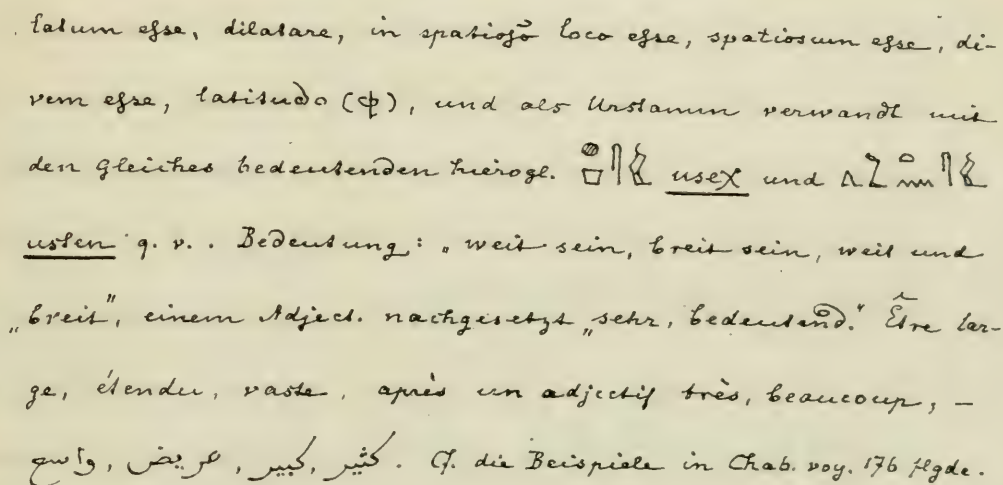 latum esse, dilatare, in spatioso loco esse, spatiosum esse, di-
vem esse, latitudo (ϕ), und als Urstamm verwandt mit
den gleiches bedeutenden hierogl. usex und
usten q. v.. Bedeutung: „weit sein, breit sein, weit und
„breit", einem Adject. nachgesetzt „sehr, bedeutend." Être lar-
ge, étendu, vaste, après un adjectif très, beaucoup, –
واسع, عريض, كبير, كثير. Cf. die Beispiele in Chab. voy. 176 flgde.